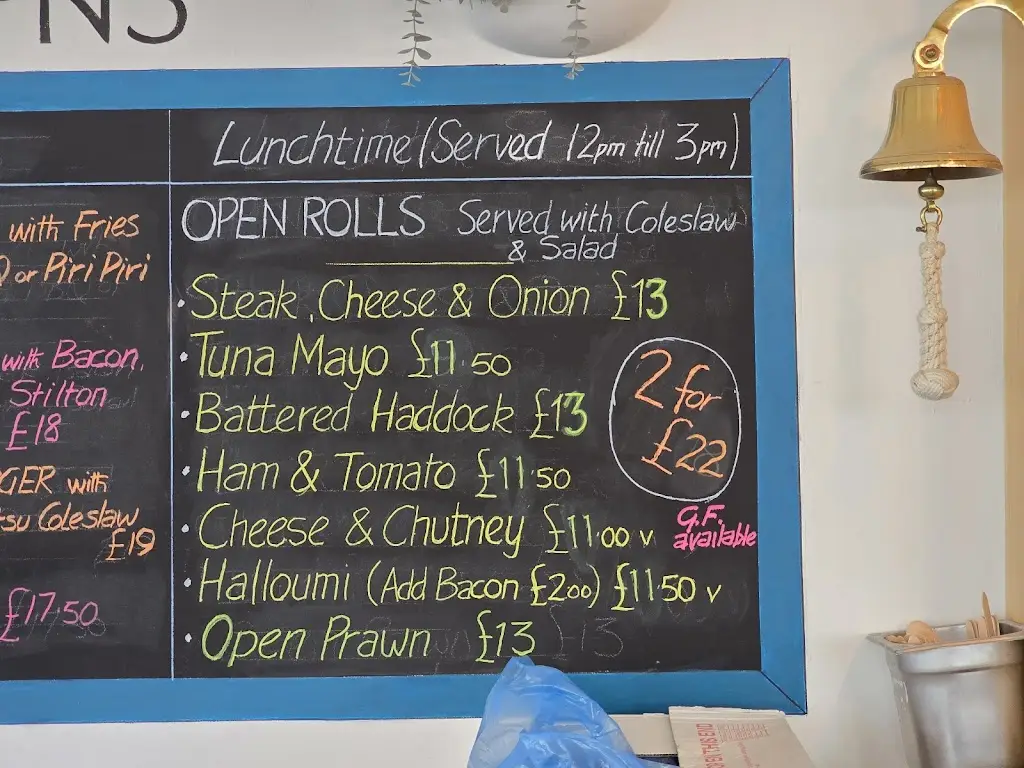 with Fries
or Piri Piri
with Bacon,
Stilton
£18
with
Coleslaw
£19
£17.50
Lunchtime (Served 12pm till 3pm)
OPEN ROLLS Served with Coleslaw
& Salad
• Steak, Cheese & Onion £13
• Tuna Mayo £11.50
• Battered Haddock £13
• Ham & Tomato £11.50
• Cheese & Chutney £11.00 v
• Halloumi (Add Bacon £2.00) £11.50 v
• Open Prawn £13
2 for
£22
G.F.
available
OPEN THIS END